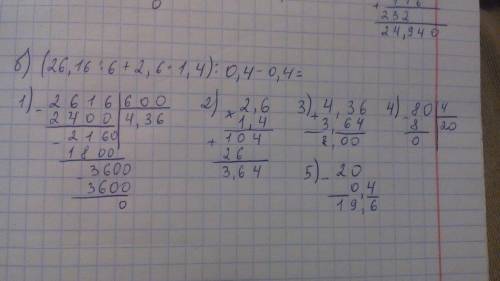 232
24,940
б) (26,16 : 6 + 2,6 · 1,4) : 0,4 - 0,4 =
1) - 2616 | 600
2400 | 4,36
- 2160
1800
- 3600
3600
0
2) × 2,6
1,4
+ 104
26
3,64
3) + 4,36
3,64
8,00
4) - 80 | 4
8 | 20
0
5) - 20
0,4
19,6